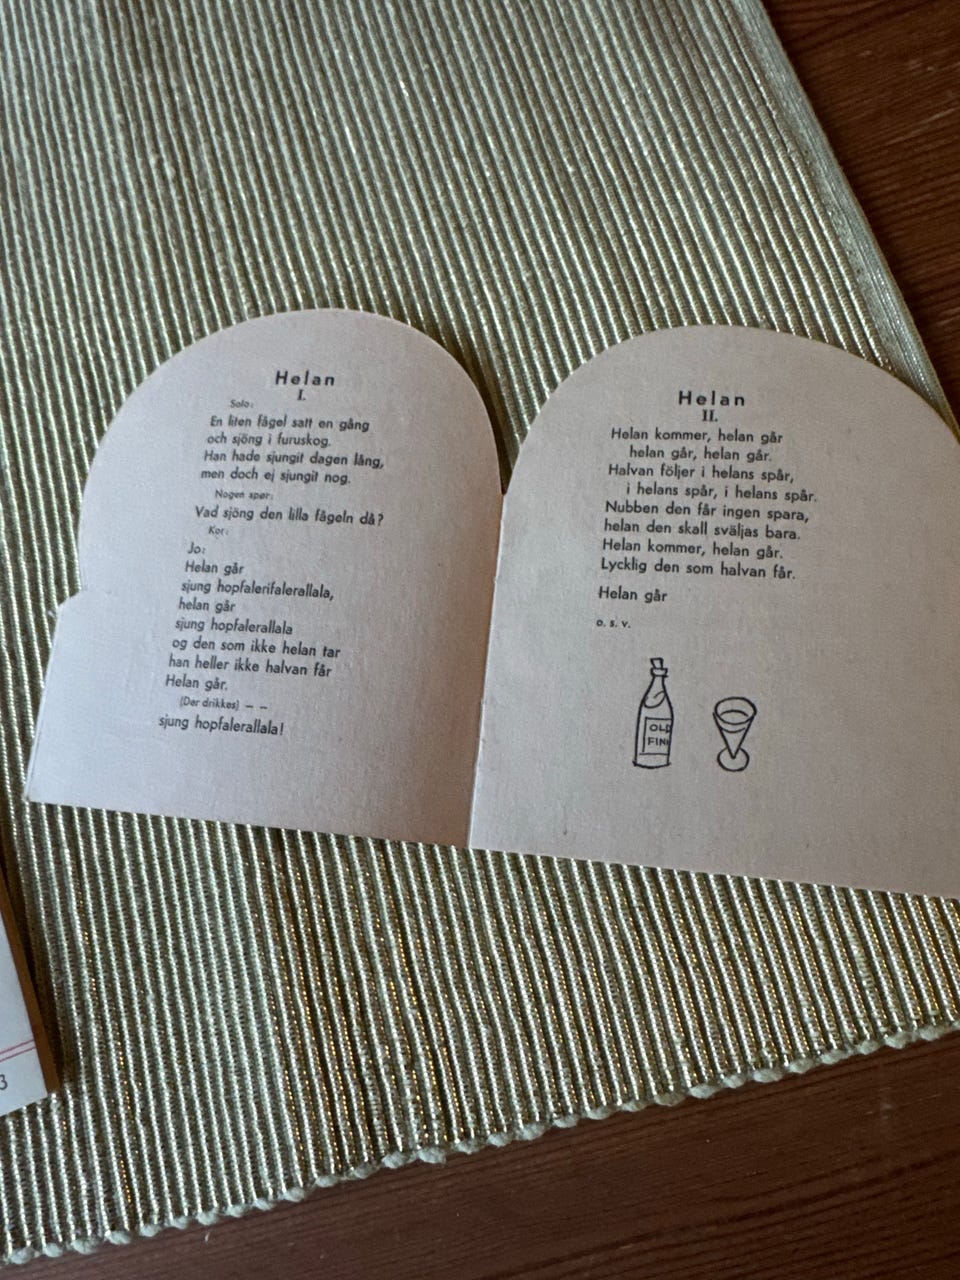 Helan
I.
Solo:
En liten fågel satt en gång
och sjöng i furuskog.
Han hade sjungit dagen lång,
men doch ej sjungit nog.
Nogen spør:
Vad sjöng den lilla fågeln då?
Kor:
Jo:
Helan går
sjung hopfalerifalerallala,
helan går
sjung hopfalerallala
og den som ikke helan tar
han heller ikke halvan får
Helan går.
(Der drikkes) — —
sjung hopfalerallala!
Helan
II.
Helan kommer, helan går
helan går, helan går.
Halvan följer i helans spår,
i helans spår, i helans spår.
Nubben den får ingen spara,
helan den skall sväljas bara.
Helan kommer, helan går.
Lycklig den som halvan får.
Helan går
o. s. v.
OLD
FINE
3